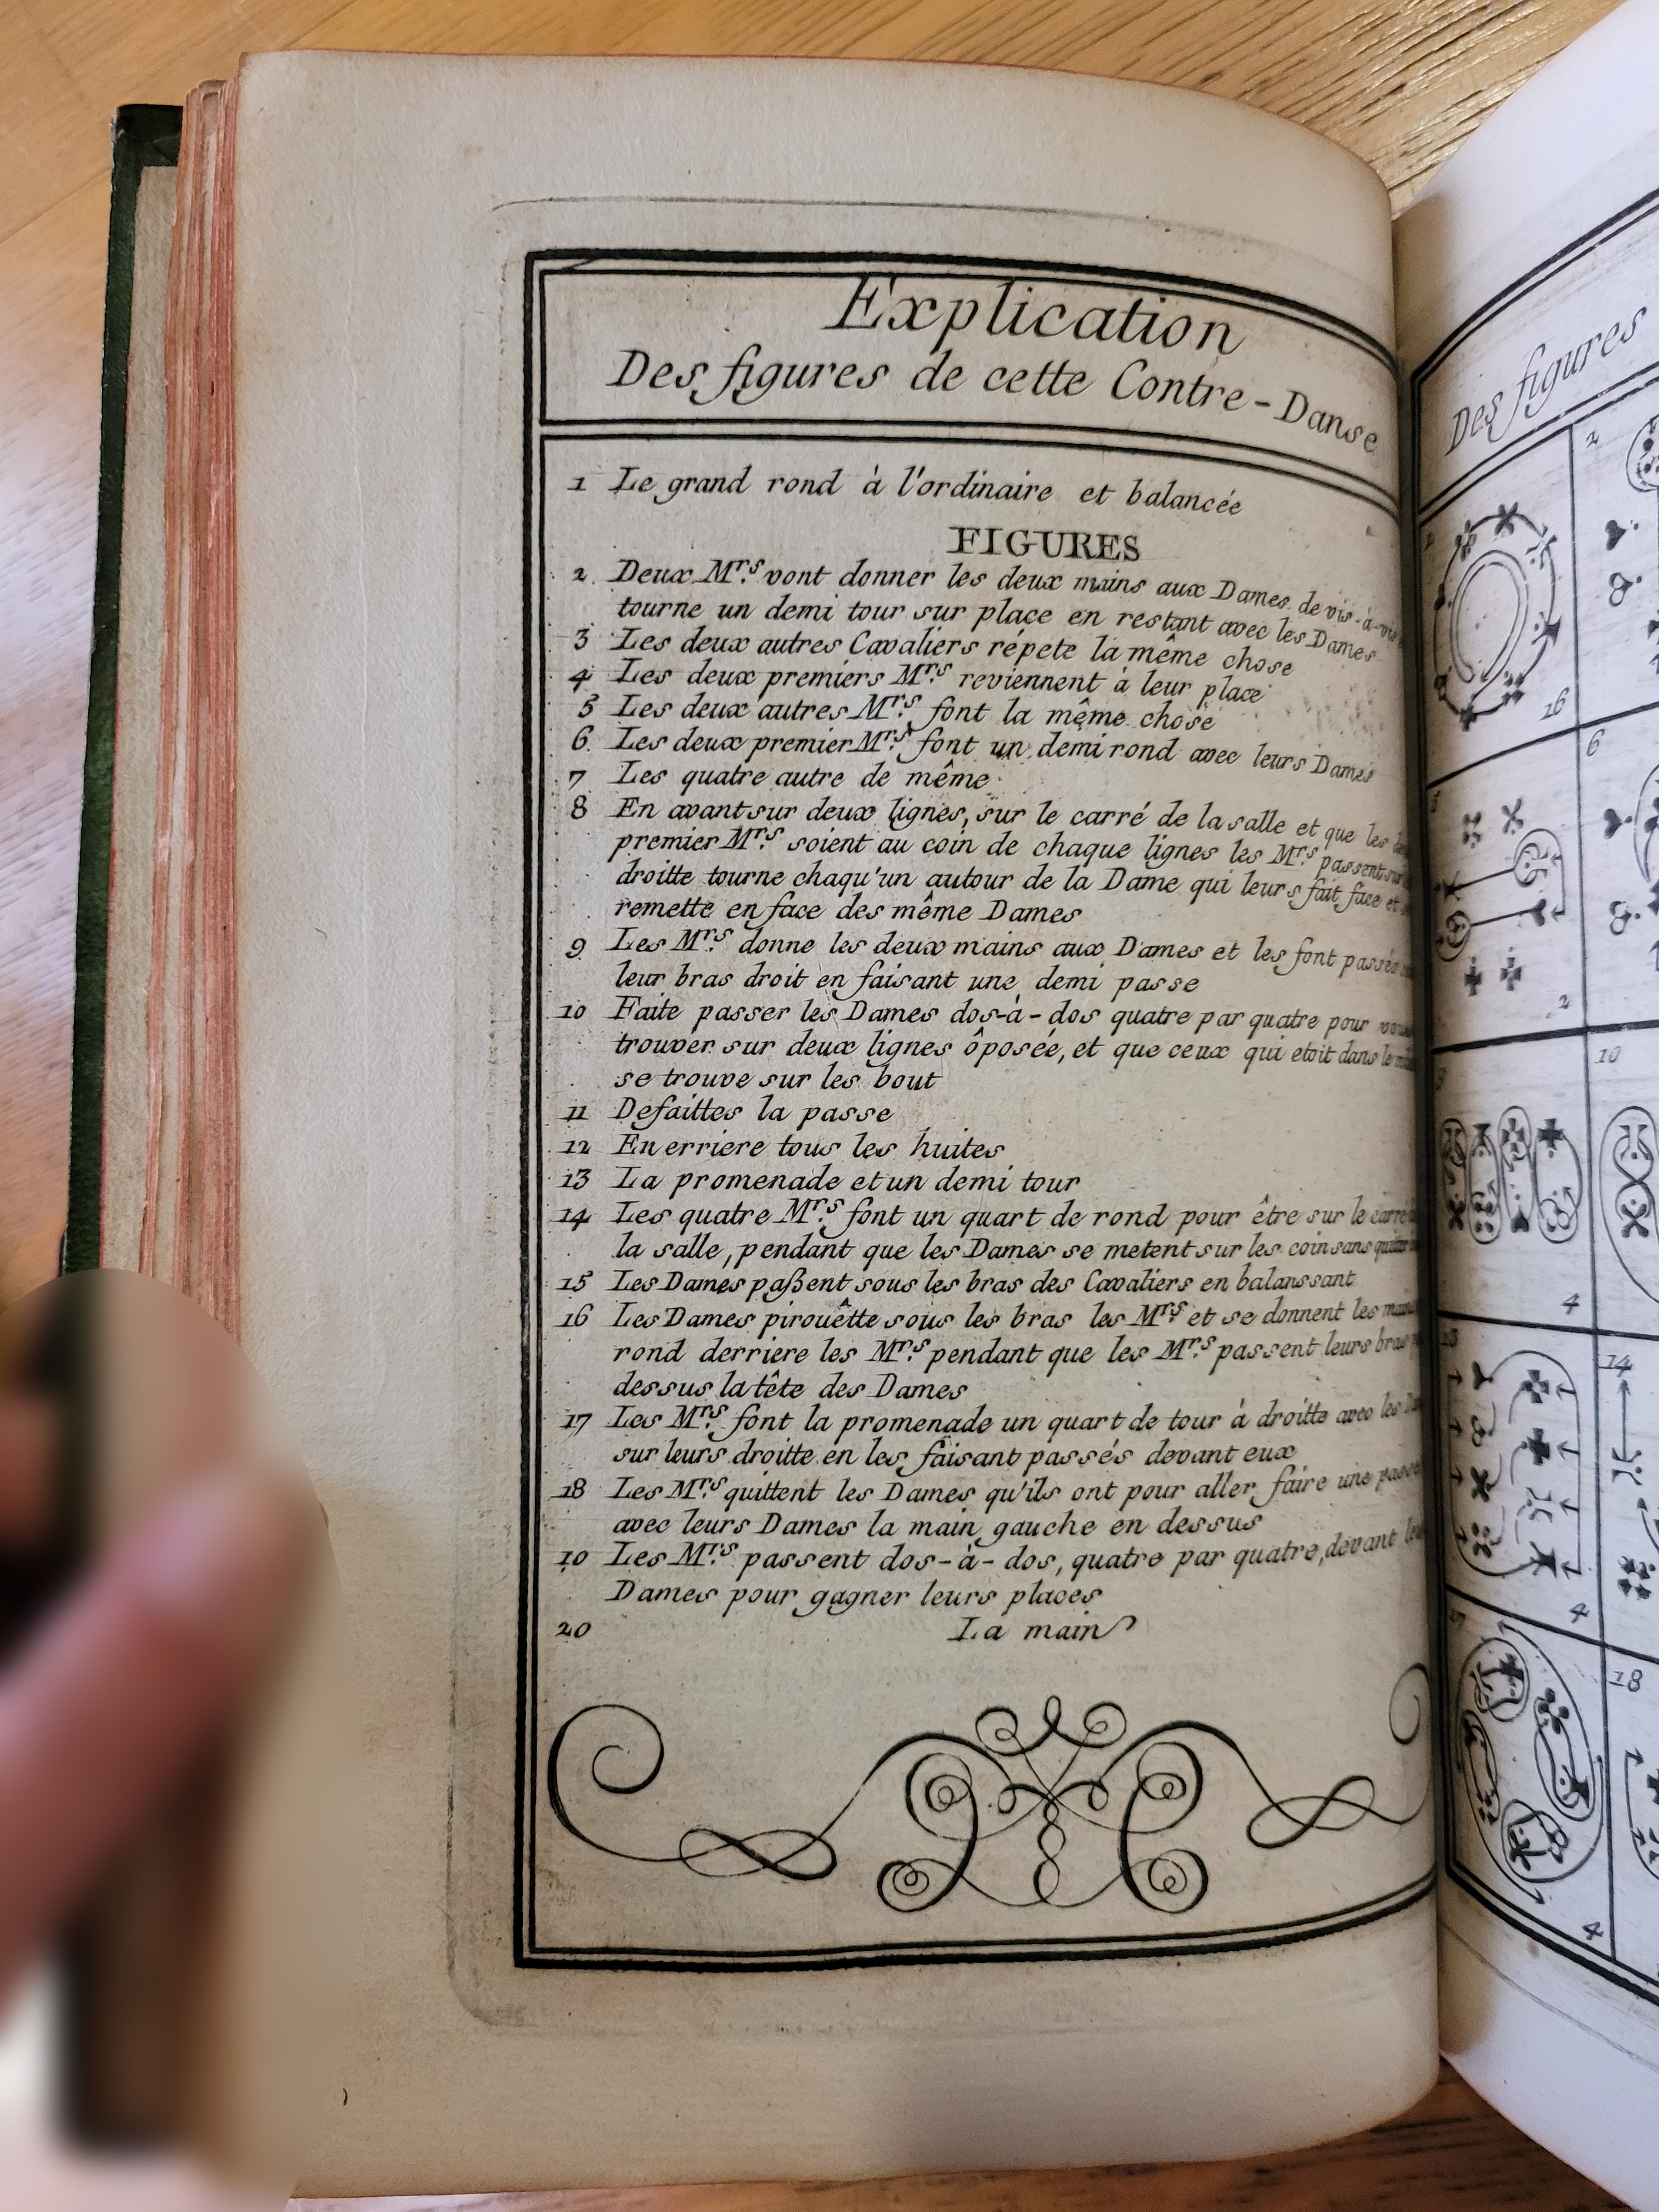 Explication
Des figures de cette Contre-Danse
1 Le grand rond à l'ordinaire et balancée
FIGURES
2. Deux Mrs. vont donner les deux mains aux Dames de vis-à-vis
tourne un demi tour sur place en restant avec les Dames
3 Les deux autres Cavaliers répete la même chose
4 Les deux premiers Mrs. reviennent à leur place
5 Les deux autres Mrs. font la même chose
6. Les deux premier Mrs. font un demi rond avec leurs Dames
7 Les quatre autre de même
8 En avant sur deux lignes, sur le carré de la salle et que les
premier Mrs. soient au coin de chaque lignes les Mrs. passent sur
droitte tourne chaqu'un autour de la Dame qui leurs fait face et
remette en face des même Dames
9. Les Mrs. donne les deux mains aux Dames et les font passés
leur bras droit en faisant une demi passe
10 Faite passer les Dames dos-à-dos quatre par quatre pour vous
trouver sur deux lignes ôposée, et que ceux qui etoit dans le
se trouve sur les bout
11 Defaittes la passe
12 En erriere tous les huites
13 La promenade et un demi tour
14 Les quatre Mrs. font un quart de rond pour être sur le carré
la salle, pendant que les Dames se metent sur les coin sans
15 Les Dames paßent sous les bras des Cavaliers en balanssant
16 Les Dames pirouêtte sous les bras les Mrs. et se donnent les
rond derriere les Mrs. pendant que les Mrs. passent leurs bras
dessus la tête des Dames
17 Les Mrs. font la promenade un quart de tour à droitte avec les
sur leurs droitte en les faisant passés devant eux
18 Les Mrs. quittent les Dames qu'ils ont pour aller faire une passe
avec leurs Dames la main gauche en dessus
10 Les Mrs. passent dos-à-dos, quatre par quatre, devant
Dames pour gagner leurs places
20 La main
Des figures
2
16
6
2
10
4
13
14
4
18
4